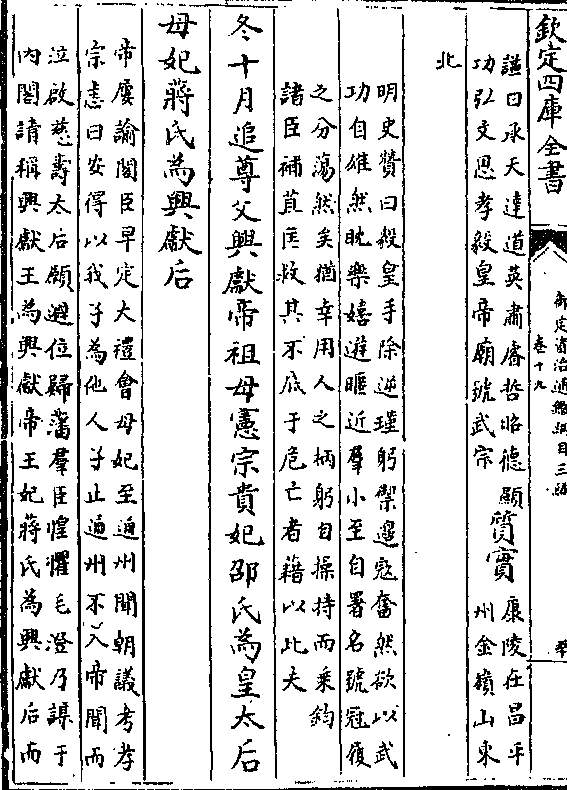 欽定四庫全書
御定資治通鑑綱目三編
卷十九
諡曰承天達道英肅睿哲昭德顯
功弘文思孝毅皇帝廟號武宗
質實
康陵在昌平
州金嶺山東
北
明史贊曰毅皇手除逆瑾躬禦邊寇奮然欲以武
功自雄然耽樂嬉遊暱近羣小至自署名號冠履
之分蕩然矣猶幸用人之柄躬自操持而秉鈞
諸臣補苴匡救其不底于危亡者藉以此夫
冬十月追尊父興獻帝祖母憲宗貴妃邵氏為皇太后
母妃蔣氏為興獻后
帝屢諭閣臣早定大禮會母妃至通州聞朝議考孝
宗恚曰安得以我子為他人子止通州不入帝聞而
泣啟慈壽太后願避位歸藩羣臣惶懼毛澄乃謀于
內閣請稱興獻王為興獻帝王妃蔣氏為興獻后而